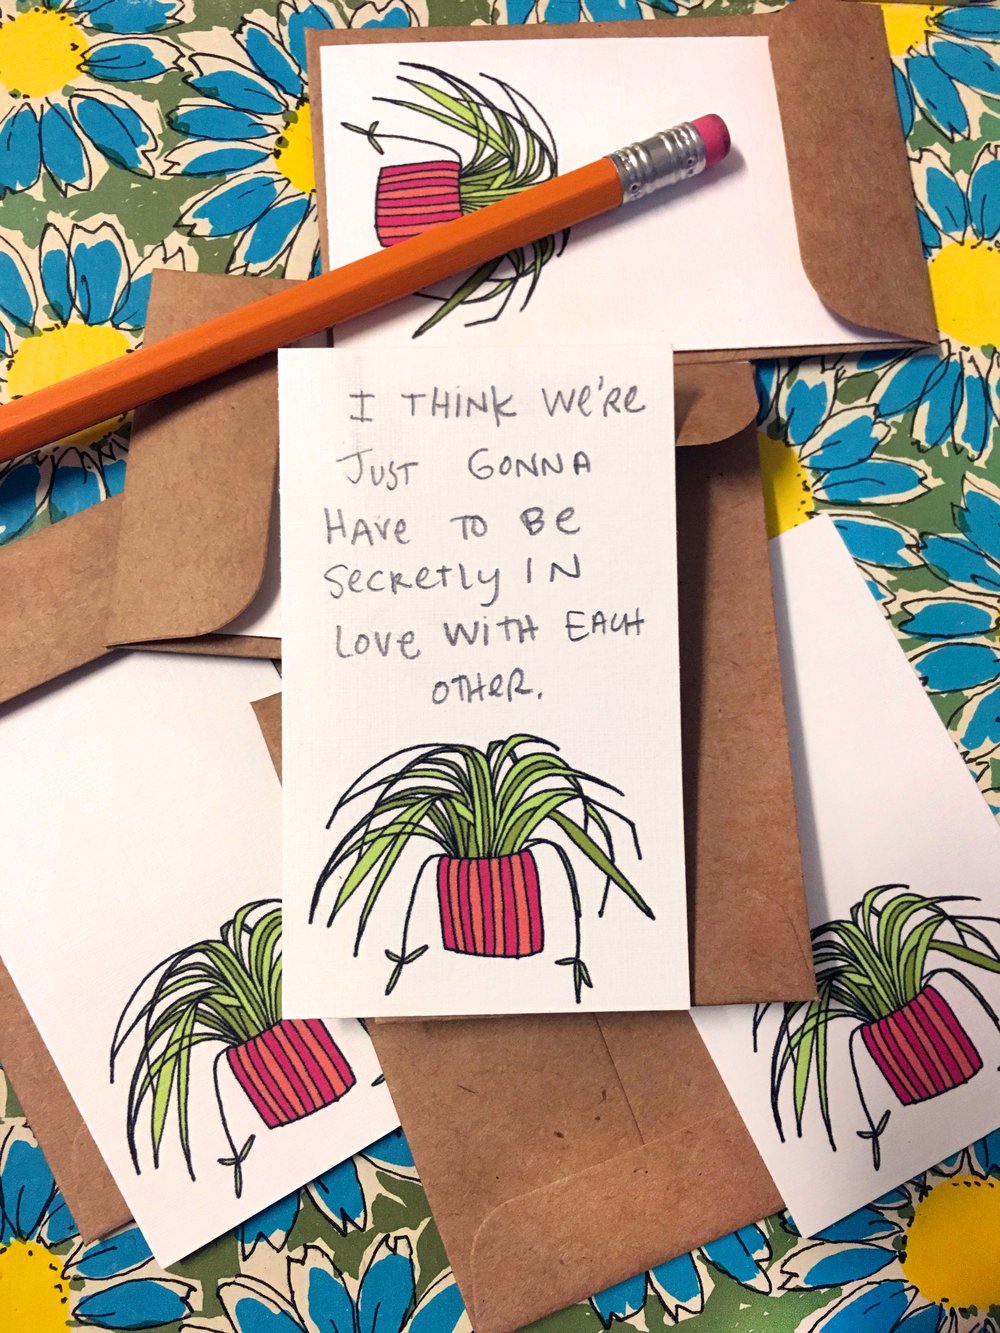 I THINK We'Re
JUST GONNA
HAVe TO Be
SecReTly IN
LOVe WITH EACH
OTHeR.